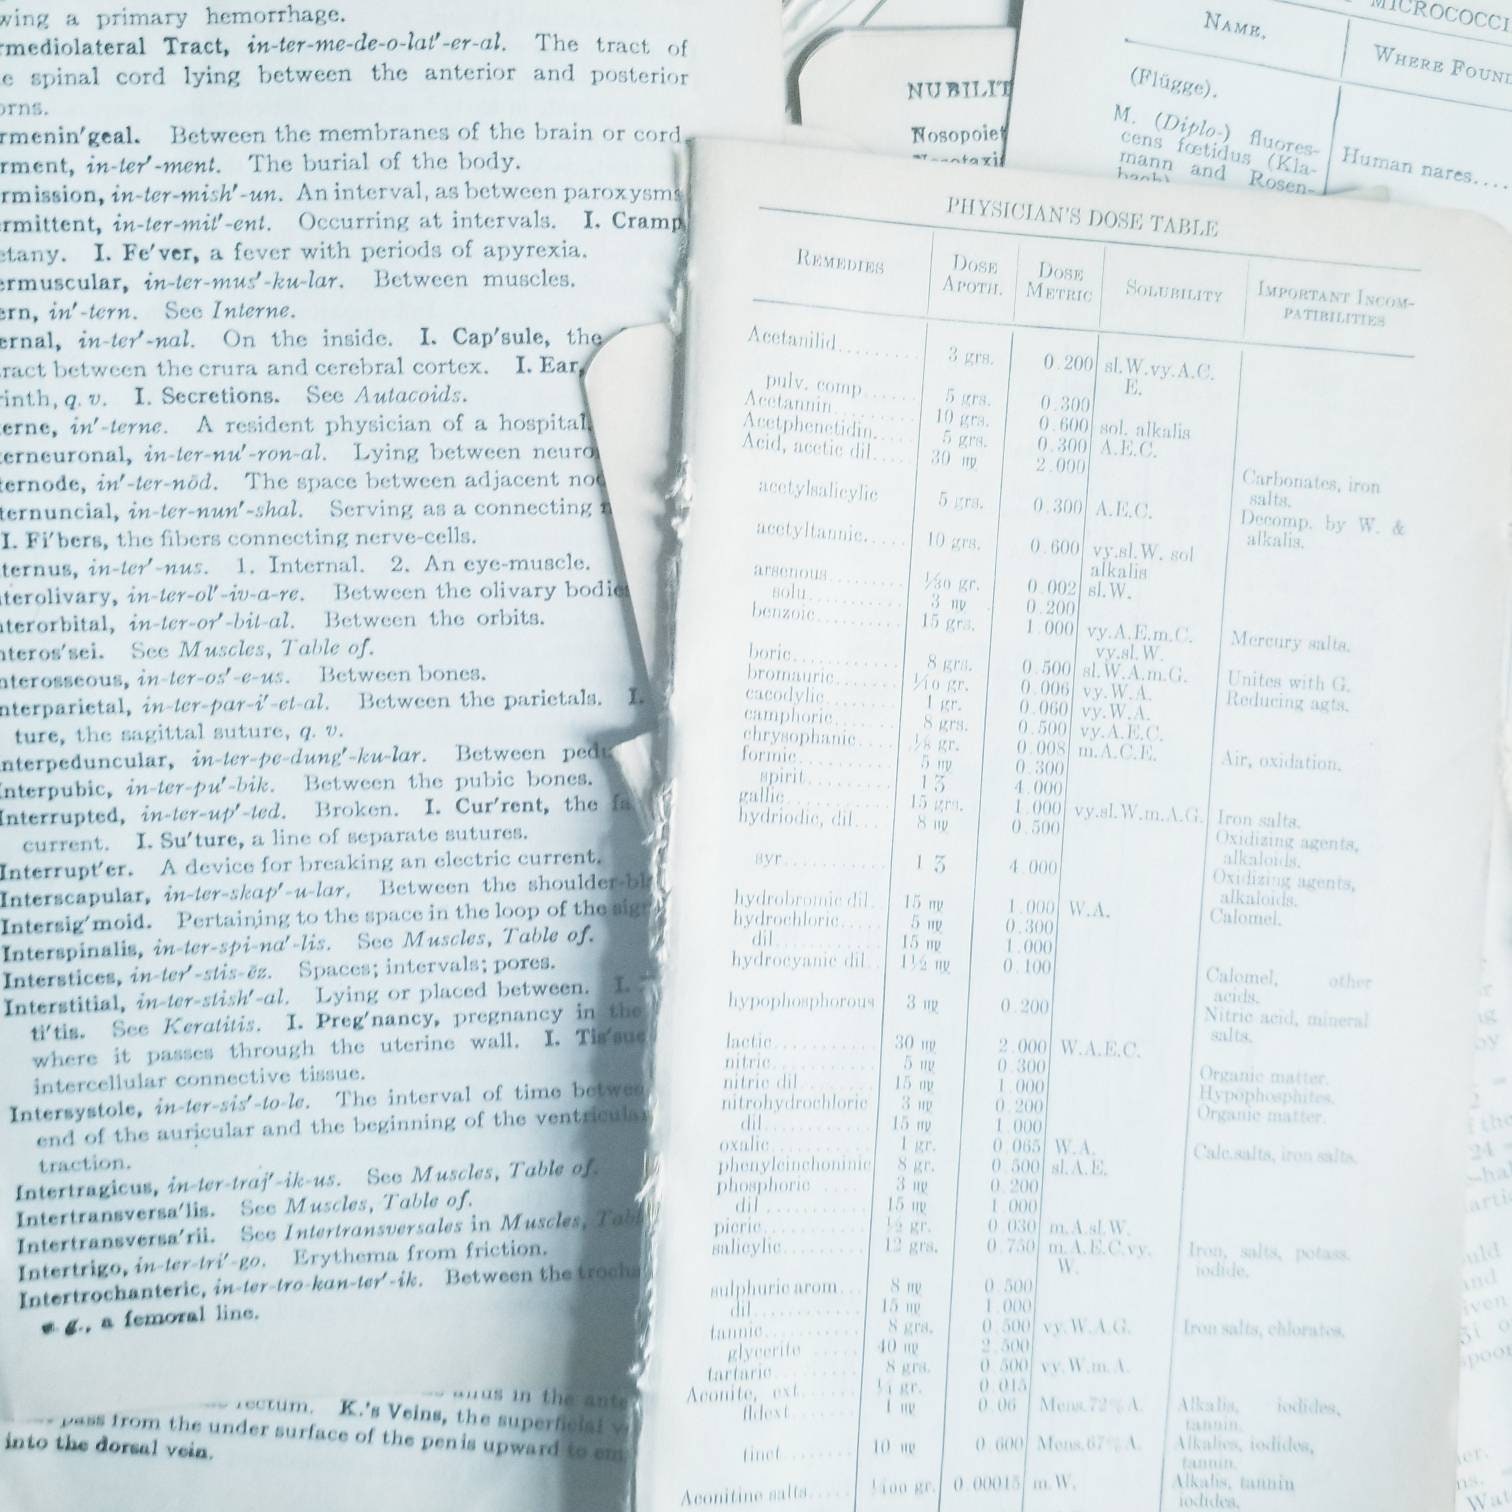 wing a primary hemorrhage.
rmediolateral Tract, in-ter-me-de-o-lat'-er-al. The tract of
e spinal cord lying between the anterior and posterior
orns.
rmenin'geal. Between the membranes of the brain or cord
rment, in-ter'-ment. The burial of the body.
rmission, in-ter-mish'-un. An interval, as between paroxysms
rmittent, in-ter-mit'-ent. Occurring at intervals. I. Cramp
etany. I. Fe'ver, a fever with periods of apyrexia.
ermuscular, in-ter-mus'-ku-lar. Between muscles.
ern, in'-tern. See Interne.
ernal, in-ter'-nal. On the inside. I. Cap'sule, the
ract between the crura and cerebral cortex. I. Ear,
rinth, q. v. I. Secretions. See Autacoids.
erne, in'-terne. A resident physician of a hospital.
erneuronal, in-ter-nu'-ron-al. Lying between neuro
ternode, in'-ter-nōd. The space between adjacent nod
ternuncial, in-ter-nun'-shal. Serving as a connecting
I. Fi'bers, the fibers connecting nerve-cells.
ternus, in-ter'-nus. 1. Internal. 2. An eye-muscle.
terolivary, in-ter-ol'-iv-a-re. Between the olivary bodie
nterorbital, in-ter-or'-bit-al. Between the orbits.
nteros'sei. See Muscles, Table of.
nterosseous, in-ter-os'-e-us. Between bones.
nterparietal, in-ter-par-i'-et-al. Between the parietals. I.
ture, the sagittal suture, q. v.
nterpeduncular, in-ter-pe-dung'-ku-lar. Between pedu
Interpubic, in-ter-pu'-bik. Between the pubic bones.
Interrupted, in-ter-up'-ted. Broken. I. Cur'rent, the fa
current. I. Su'ture, a line of separate sutures.
Interrupt'er. A device for breaking an electric current.
Interscapular, in-ter-skap'-u-lar. Between the shoulder-bl
Intersig'moid. Pertaining to the space in the loop of the sigr
Interspinalis, in-ter-spi-na'-lis. See Muscles, Table of.
Interstices, in-ter'-stis-ēz. Spaces; intervals; pores.
Interstitial, in-ter-stish'-al. Lying or placed between. I.
ti'tis. See Keratitis. I. Preg'nancy, pregnancy in the
where it passes through the uterine wall. I. Tis'sue
intercellular connective tissue.
Intersystole, in-ter-sis'-to-le. The interval of time between
end of the auricular and the beginning of the ventricular
traction.
Intertragicus, in-ter-traj'-ik-us. See Muscles, Table of.
Intertransversa'lis. See Muscles, Table of.
Intertransversa'rii. See Intertransversales in Muscles, Tabl
Intertrigo, in-ter-tri'-go. Erythema from friction.
Intertrochanteric, in-ter-tro-kan-ter'-ik. Between the trocha
e. g., a femoral line.
anus in the ante
rectum. K.'s Veins, the superficial v
pass from the under surface of the penis upward to em
into the dorsal vein.
NUBILIT
Nosopoiet
MICROCOCCI
NAME. WHERE FOUND
(Flügge).
M. (Diplo-) fluores-
cens fœtidus (Kla- Human nares....
mann and Rosen-
bach)
PHYSICIAN'S DOSE TABLE
REMEDIES DOSE APOTH. DOSE METRIC SOLUBILITY IMPORTANT INCOM-
PATIBILITIES
Acetanilid......... 3 grs. 0.200 sl.W.vy.A.C.
E.
pulv. comp ...... 5 grs. 0.300
Acetannin.......... 10 grs. 0.600 sol. alkalis
Acetphenetidin.... 5 grs. 0.300 A.E.C.
Acid, acetic dil.... 30 ♏ 2.000 Carbonates, iron
salts.
acetylsalicylic 5 grs. 0.300 A.E.C. Decomp. by W. &
alkalis.
acetyltannic..... 10 grs. 0.600 vy.sl.W. sol
alkalis
arsenous ......... 1/30 gr. 0.002 sl.W.
solu........... 3 ♏ 0.200
benzoic.......... 15 grs. 1.000 vy.A.E.m.C. Mercury salts.
vy.sl.W.
boric............ 8 grs. 0.500 sl.W.A.m.G. Unites with G.
bromauric........ 1/10 gr. 0.006 vy.W.A. Reducing agts.
cacodylic........ 1 gr. 0.060 vy.W.A.
camphoric........ 8 grs. 0.500 vy.A.E.C.
chrysophanic.... 1/8 gr. 0.008 m.A.C.E. Air, oxidation.
formic........... 5 ♏ 0.300
spirit.......... 1 ʒ 4.000
gallic............ 15 grs. 1.000 vy.sl.W.m.A.G. Iron salts.
hydriodic, dil... 8 ♏ 0.500 Oxidizing agents,
alkaloids.
syr............. 1 ʒ 4.000 Oxidizing agents,
alkaloids.
hydrobromic dil. 15 ♏ 1.000 W.A. Calomel.
hydrochloric..... 5 ♏ 0.300
dil............. 15 ♏ 1.000
hydrocyanic dil.. 1½ ♏ 0.100 Calomel, other
acids.
hypophosphorous 3 ♏ 0.200 Nitric acid, mineral
salts.
lactic............ 30 ♏ 2.000 W.A.E.C.
nitric............ 5 ♏ 0.300 Organic matter.
nitric dil........ 15 ♏ 1.000 Hypophosphites.
nitrohydrochloric 3 ♏ 0.200 Organic matter.
dil............. 15 ♏ 1.000
oxalic........... 1 gr. 0.065 W.A. Calc.salts, iron salts.
phenylcinchoninic 8 gr. 0.500 sl.A.E.
phosphoric .... 3 ♏ 0.200
dil ............ 15 ♏ 1.000
picric............ ½ gr. 0.030 m.A.sl.W.
salicylic......... 12 grs. 0.750 m.A.E.C.vy. Iron, salts, potass.
W. iodide.
sulphuric arom... 8 ♏ 0.500
dil............. 15 ♏ 1.000
tannic........... 8 grs. 0.500 vy.W.A.G. Iron salts, chlorates.
glycerite ..... 40 ♏ 2.500
tartaric.......... 8 grs. 0.500 vy.W.m.A.
Aconite, ext....... ¼ gr. 0.015
fldext........... 1 ♏ 0.06 Mens.72% A. Alkalis, iodides,
tannin.
tinct............ 10 ♏ 0.600 Mens.67% A. Alkalies, iodides,
tannin.
Aconitine salts..... 1/400 gr. 0.00015 m.W. Alkalis, tannin
iodides,